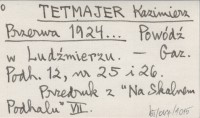 TETMAJER Kazimierz
Przerwa 1924... Powódź
w Ludźmierzu. – Gaz.
Podh. 12, nr 25 i 26.
Przedruk z "Na Skalnem
Podhalu" VII.